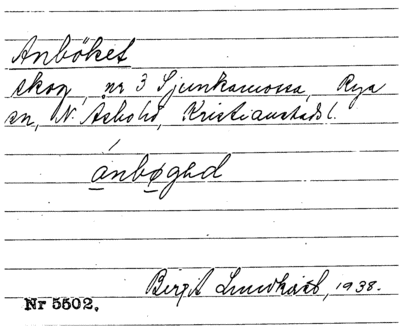 Anböket
skog, nr 3 Ljunkamossa, Rya
sn, N. Åsbo hd, Kristianstads l.
ánbøgəd
Birgit Lundkvist, 1938.
Nr 5502.